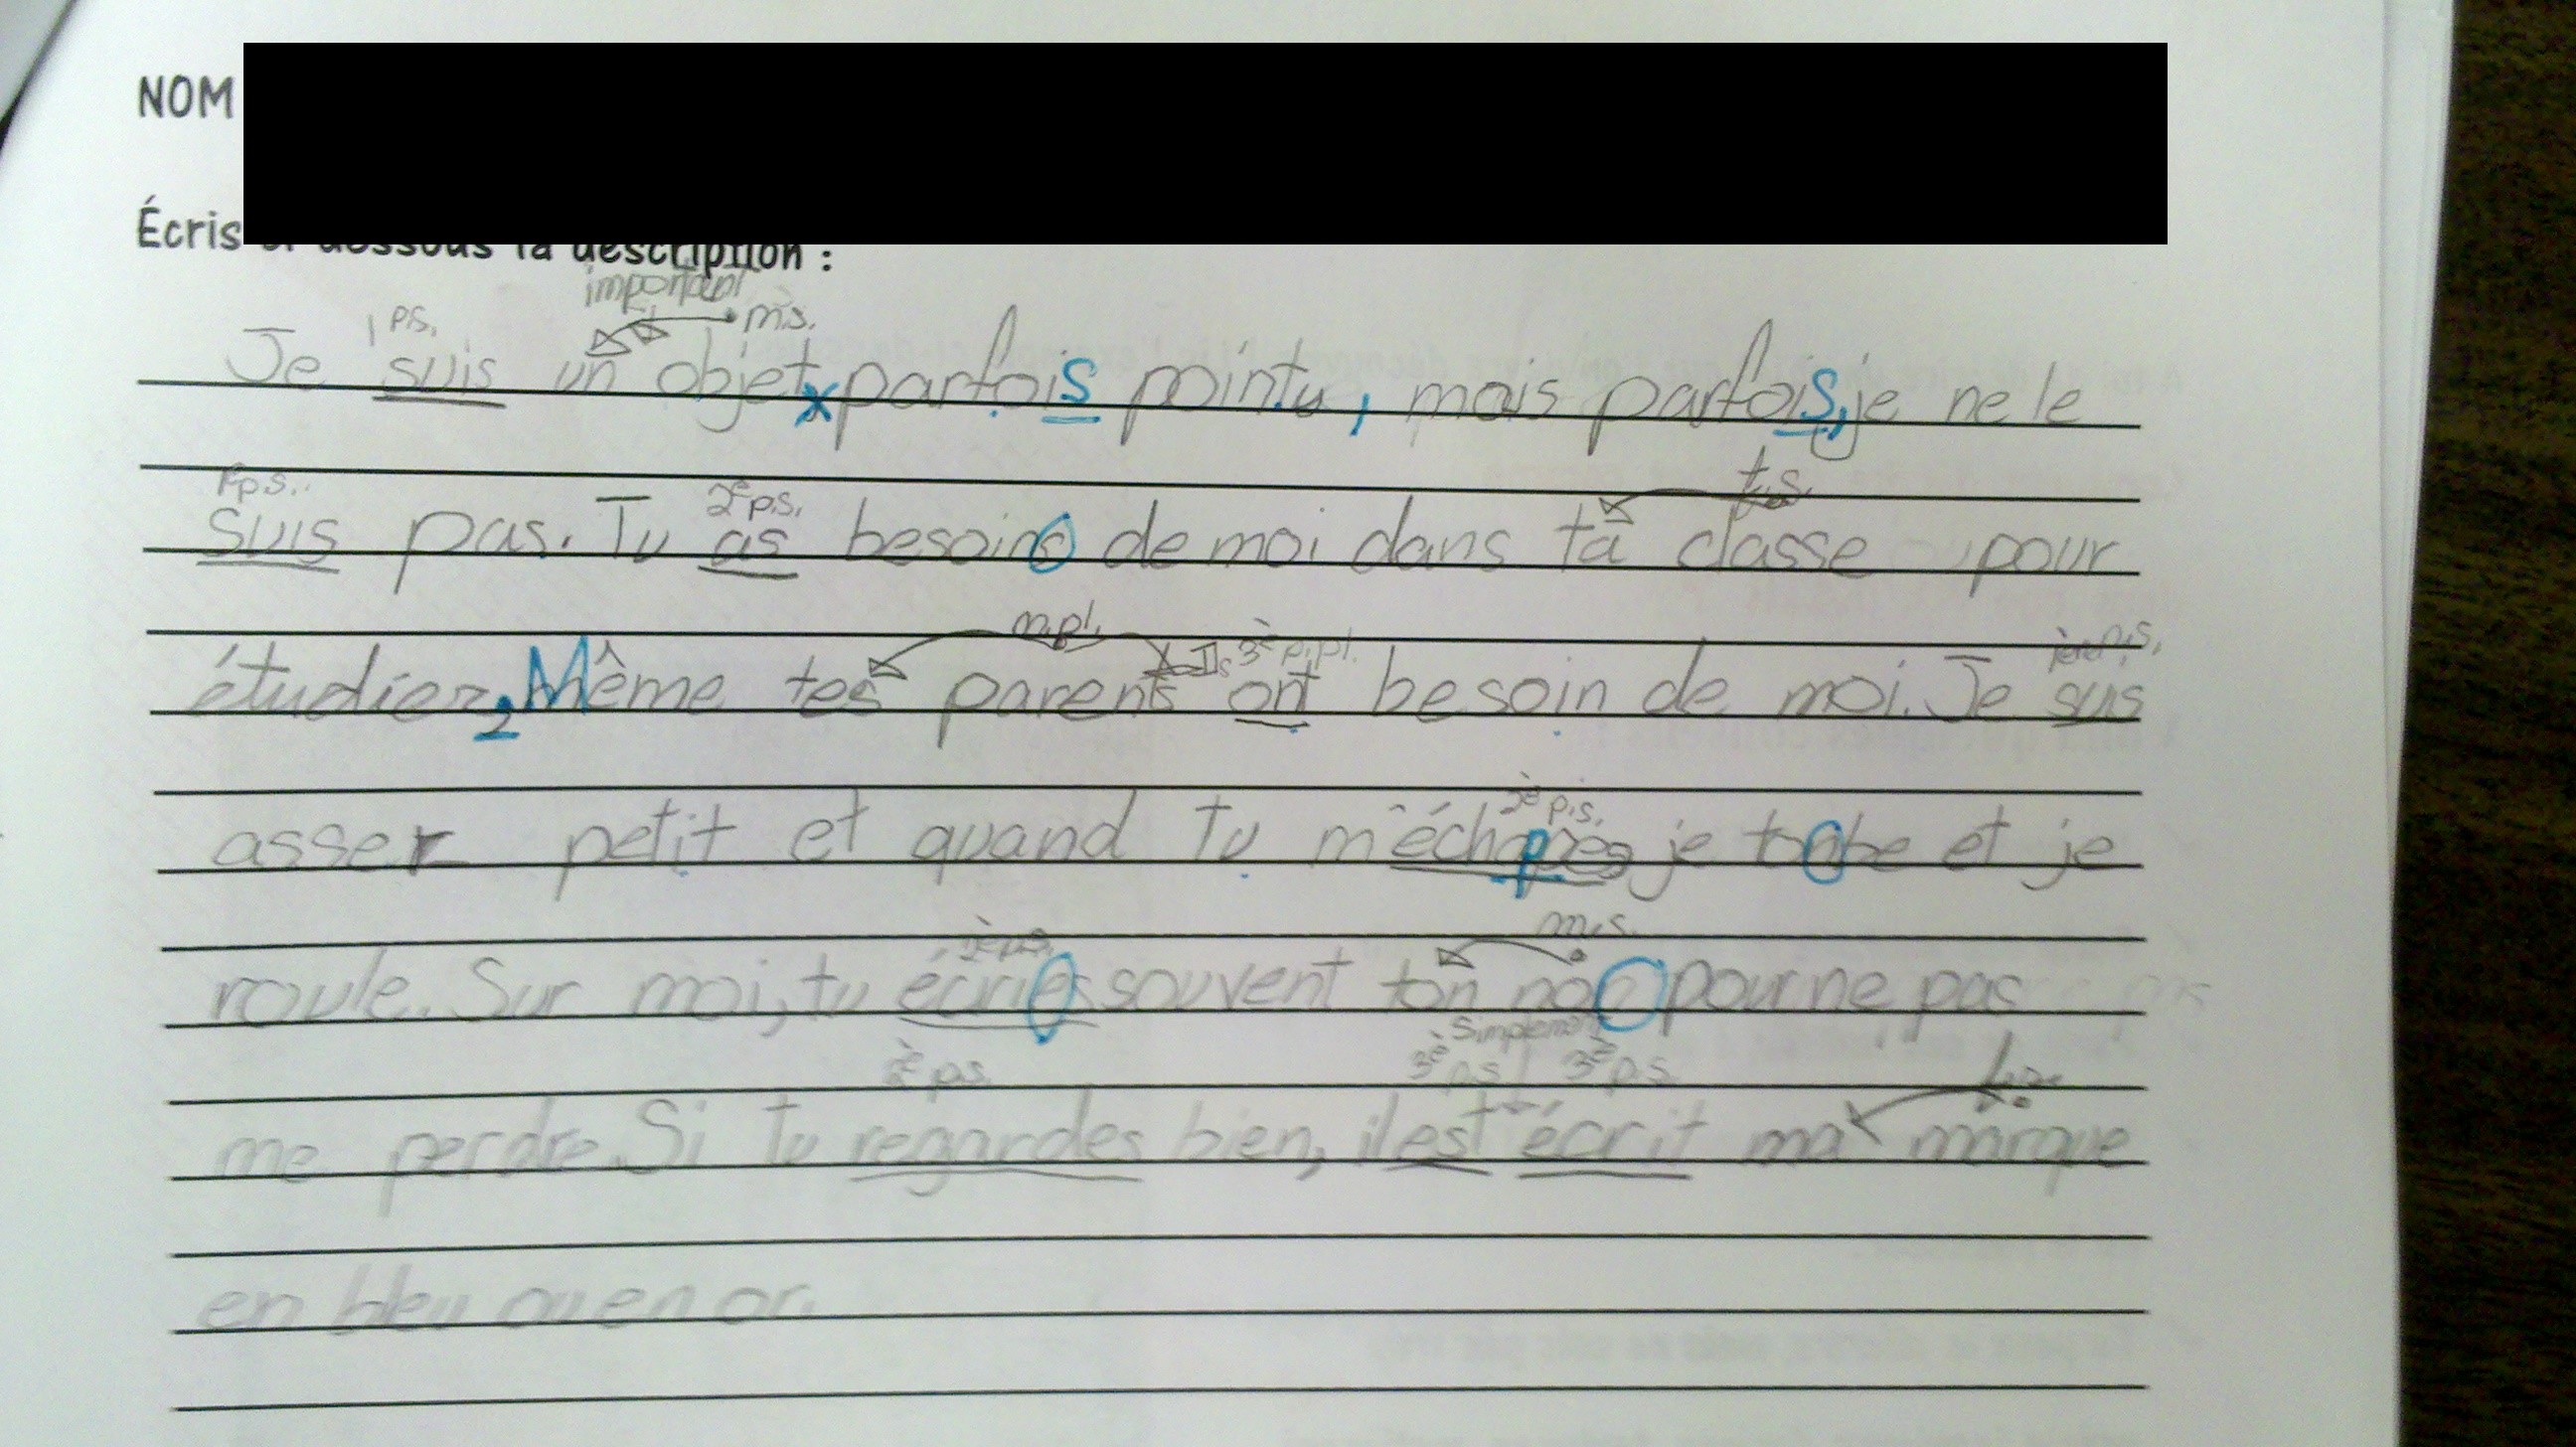 NOM
Écris ci-dessous la description :
important
1 p.s. m.s.
Je suis un objet x parfois pointu, mais parfois, je ne le
1e p.s. 2e p.s. f.s.
suis pas. Tu as besoins de moi dans ta classe pour
m.pl. Ils 3e p.pl. p.s.
étudier. Même tes parents ont besoin de moi. Je suis
2e p.s.
asser petit et quand tu m'échappes je tonbe et je
2e p.s. m.s.
roule. Sur moi, tu écries souvent ton non pour ne pas
simplement
2e p.s. 3e p.s. 3e p.s.
me perdre. Si tu regardes bien, il est écrit ma marque
en bleu ou en or.